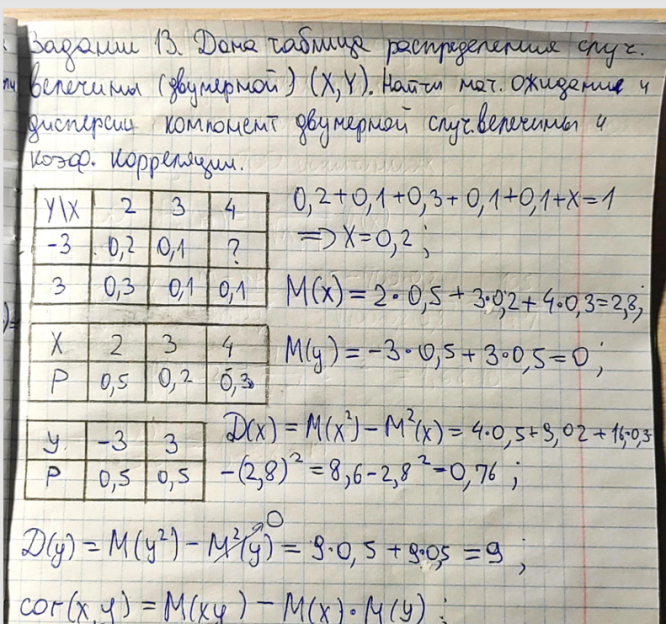 Задание 13. Дана таблица распределения случ.
величины (двумерной) (X,Y). Найти мат. ожидание и
дисперсии компонент двумерной случ.величины и
коэф. корреляции.
Y\X 2 3 4
-3 0,2 0,1 ?
3 0,3 0,1 0,1
0,2+0,1+0,3+0,1+0,1+X=1
=>X=0,2;
M(x)=2·0,5+3·0,2+4·0,3=2,8;
X 2 3 4
P 0,5 0,2 0,3
M(y)=-3·0,5+3·0,5=0;
y -3 3
P 0,5 0,5
D(x)=M(x²)-M²(x)=4·0,5+9,02+16·0,3
-(2,8)²=8,6-2,8²=0,76;
D(y)=M(y²)-M²(y)=9·0,5+9·0,5=9;
0
cor(x,y)=M(xy)-M(x)·M(y);